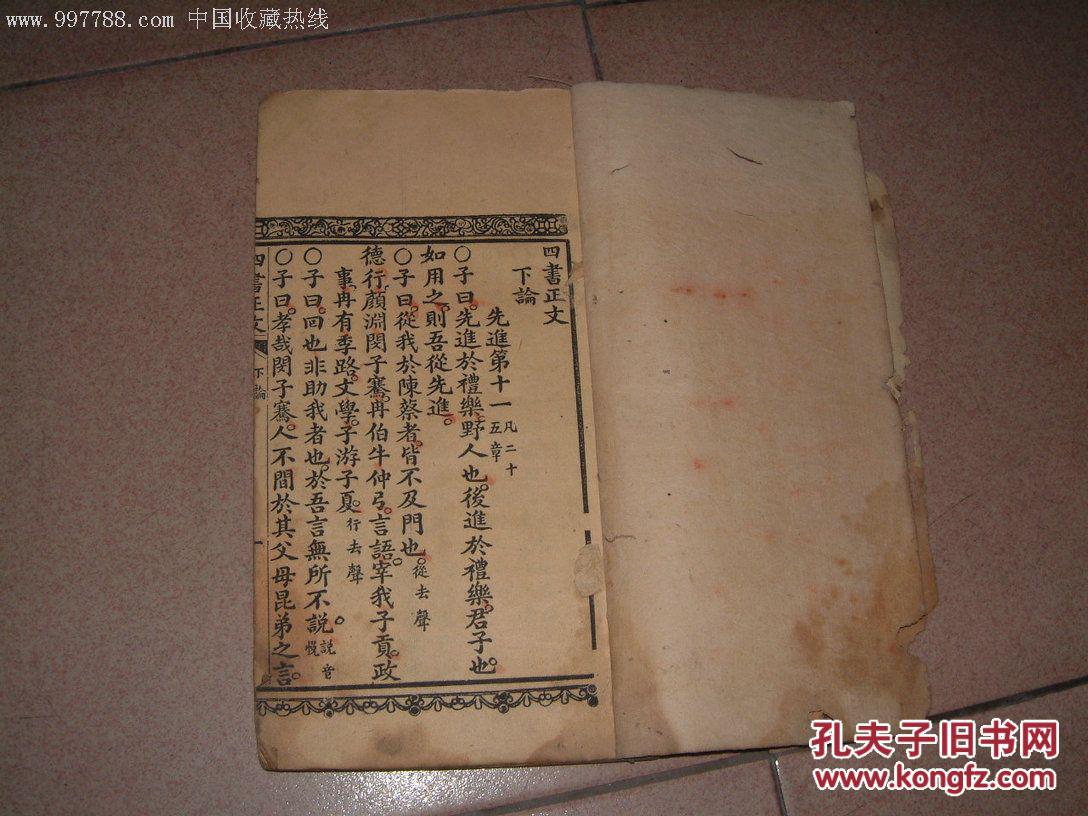 www.997788.com 中国收藏热线
四書正文
下論
先進第十一 凡二十五章
〇子曰。先進於禮樂。野人也。後進於禮樂。君子也。
如用之。則吾從先進。
〇子曰。從我於陳蔡者。皆不及門也。從去聲
德行。顏淵閔子騫。冉伯牛仲弓。言語。宰我子貢。政
事。冉有季路。文學。子游子夏。行去聲
〇子曰。回也非助我者也。於吾言無所不說。說音悅
〇子曰。孝哉閔子騫。人不間於其父母昆弟之言。
四書正文 下論 一
孔夫子旧书网
www.kongfz.com